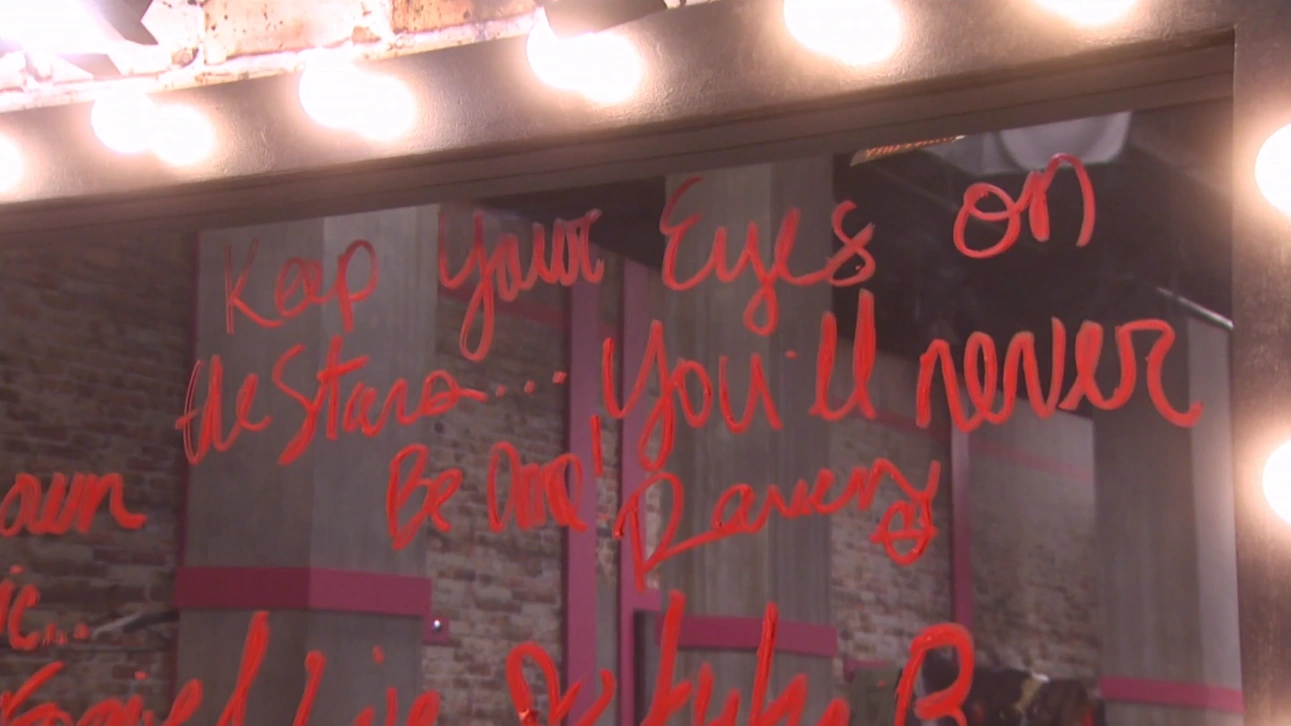 Keep Your Eyes on
the Stars... You'll never
Be One! Raven
own
ic...